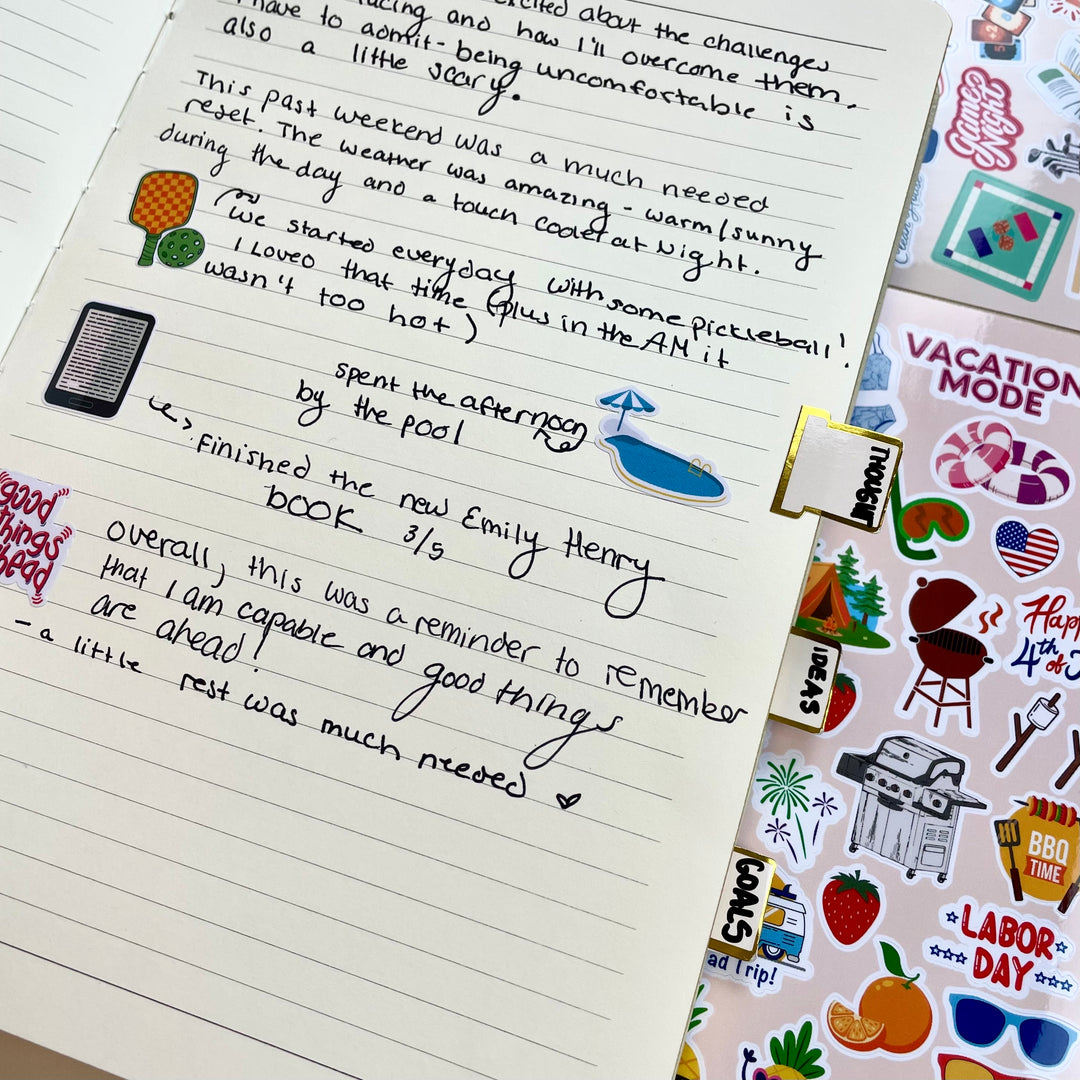 excited about the challenges
and how I'll overcome them.
I have to admit - being uncomfortable is
also a little scary.
This past weekend was a much needed
reset. The weather was amazing - warm/sunny
during the day and a touch cooler at night.
We started everyday with some pickleball!
I loved that time (plus in the AM it
wasn't too hot)
spent the afternoon
by the pool
finished the new Emily Henry
book 3/5
overall, this was a reminder to remember
that I am capable and good things
are ahead!
- a little rest was much needed
good
things
ahead
THOUGHT
IDEAS
GOALS
Game
Night
VACATION
MODE
Happy
4th
of J
BBQ
TIME
LABOR
DAY
ad Trip!